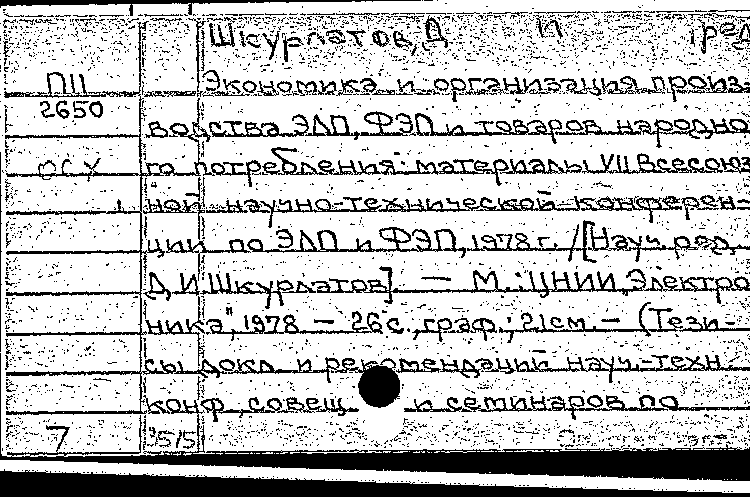 Шкурлатов, Д И ред
ПII Экономика и организация произ-
2650
водства ЭЛП, ФЭП и товаров народно
ОСУ го потребления: материалы VII Всесоюз
ной научно-технической конферен-
ции по ЭЛП и ФЭП, 1978 г. / [Науч. ред.
Д И Шкурлатов]. — М.: ЦНИИ „Электро
ника", 1978 — 26 с., граф.; 21 см. — (Тези-
сы докл и рекомендаций науч.-техн.
конф, совещ. и семинаров по
7 3515